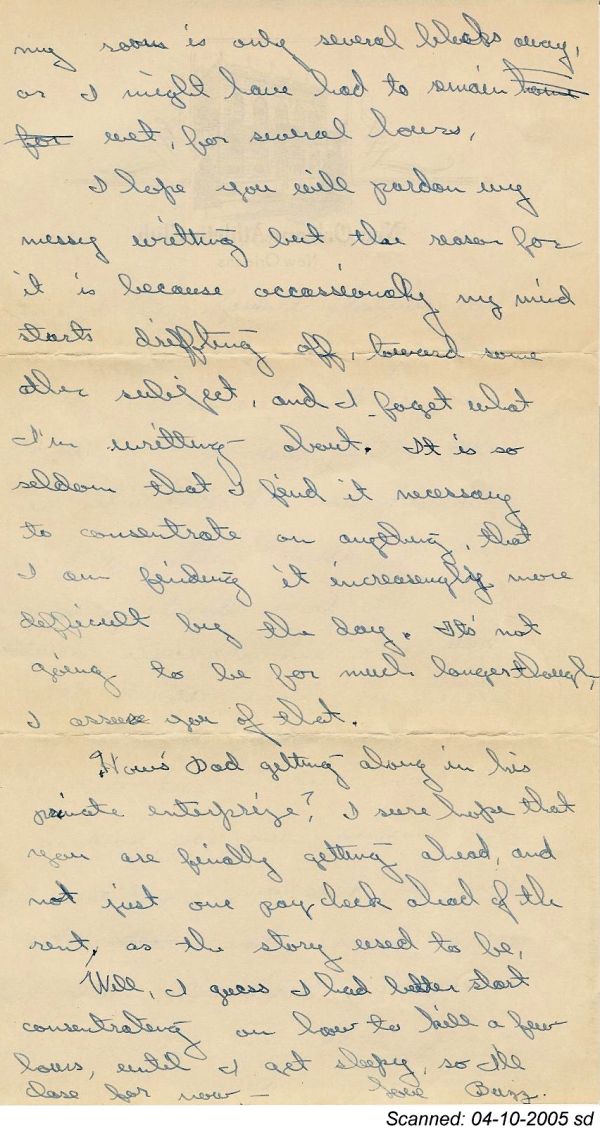 my room is only several blocks away,
or I might have had to remain home
for wet, for several hours,
I hope you will pardon my
messy writting but the reason for
it is because occassionally my mind
starts driffting off, toward some
other subject, and I forget what
I'm writting about. It is so
seldom that I find it necessary
to consentrate on anything, that
I am finding it increasengly more
difficult by the day. It's not
going to be for much longer though,
I assure you of that.
How's Dad getting along in his
private enterprize? I sure hope that
you are finally getting ahead, and
not just one paycheck ahead of the
rent, as the story used to be,
Well, I guess I had better start
consentrating on how to kill a few
hours, until I get sleepy, so I'll
close for now – Love Buzz.
New Orleans
Scanned: 04-10-2005 sd